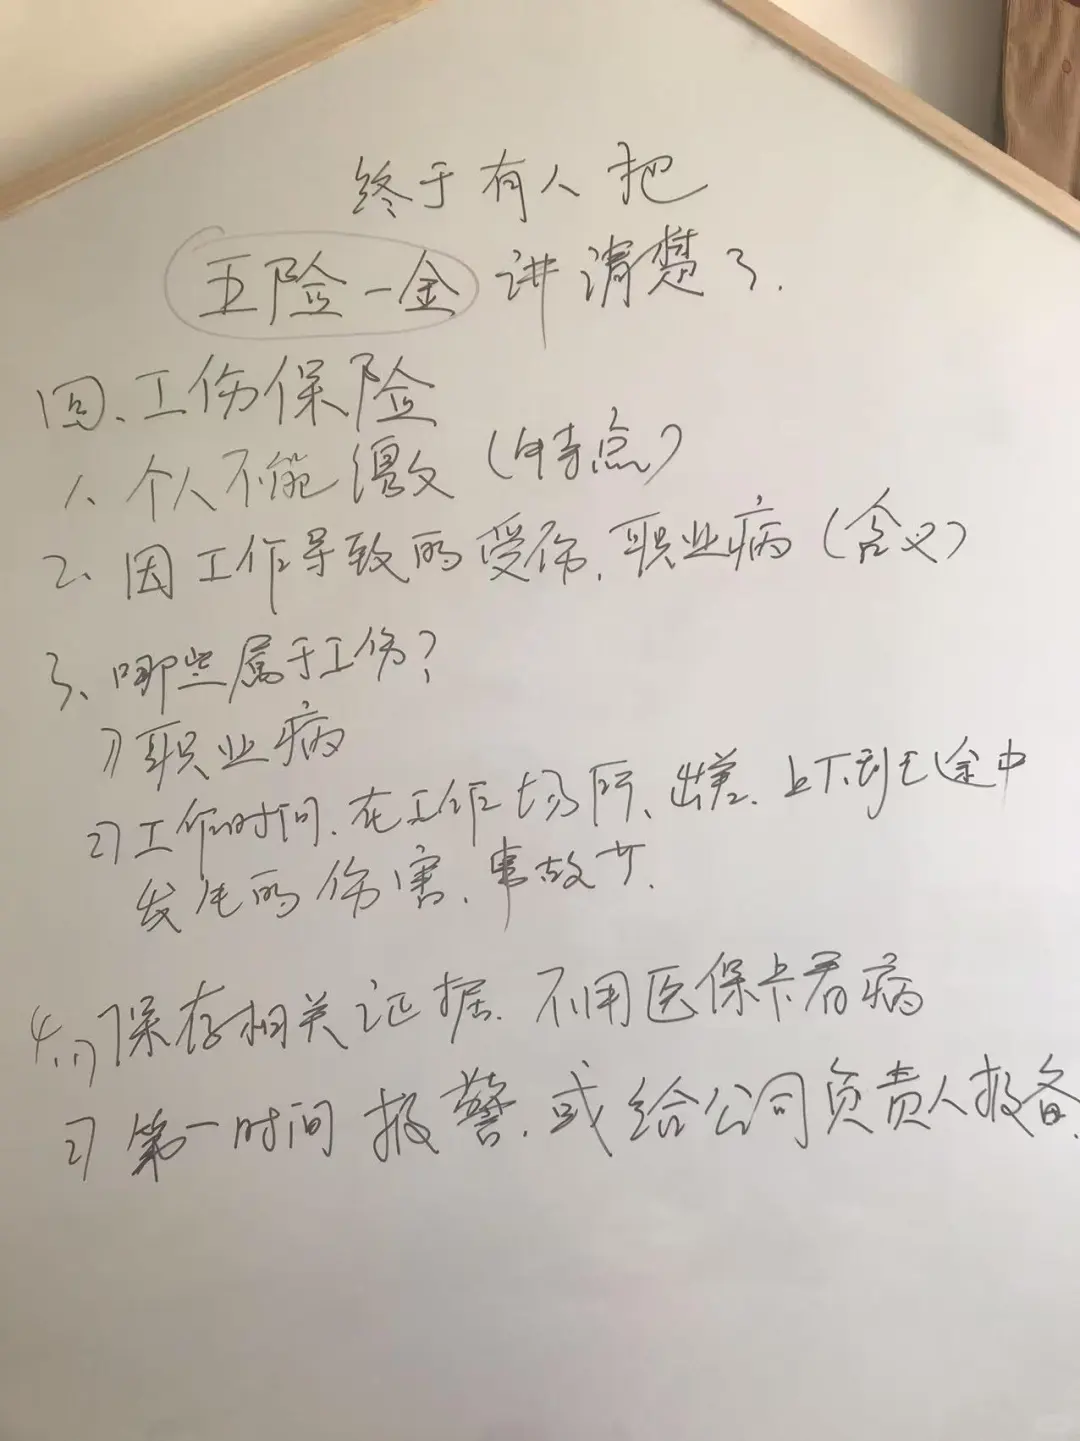 终于有人把
五险一金讲清楚了.
四、工伤保险
1、个人不能缴交(特点)
2、因工作导致的受伤、职业病(含义)
3、哪些属于工伤?
1)职业病
2)工作时间、在工作场所、出差、上下班途中
发生的伤害、事故才.
4、1)保存相关证据、不用医保卡看病
2)第一时间报警、或给公司负责人报备、